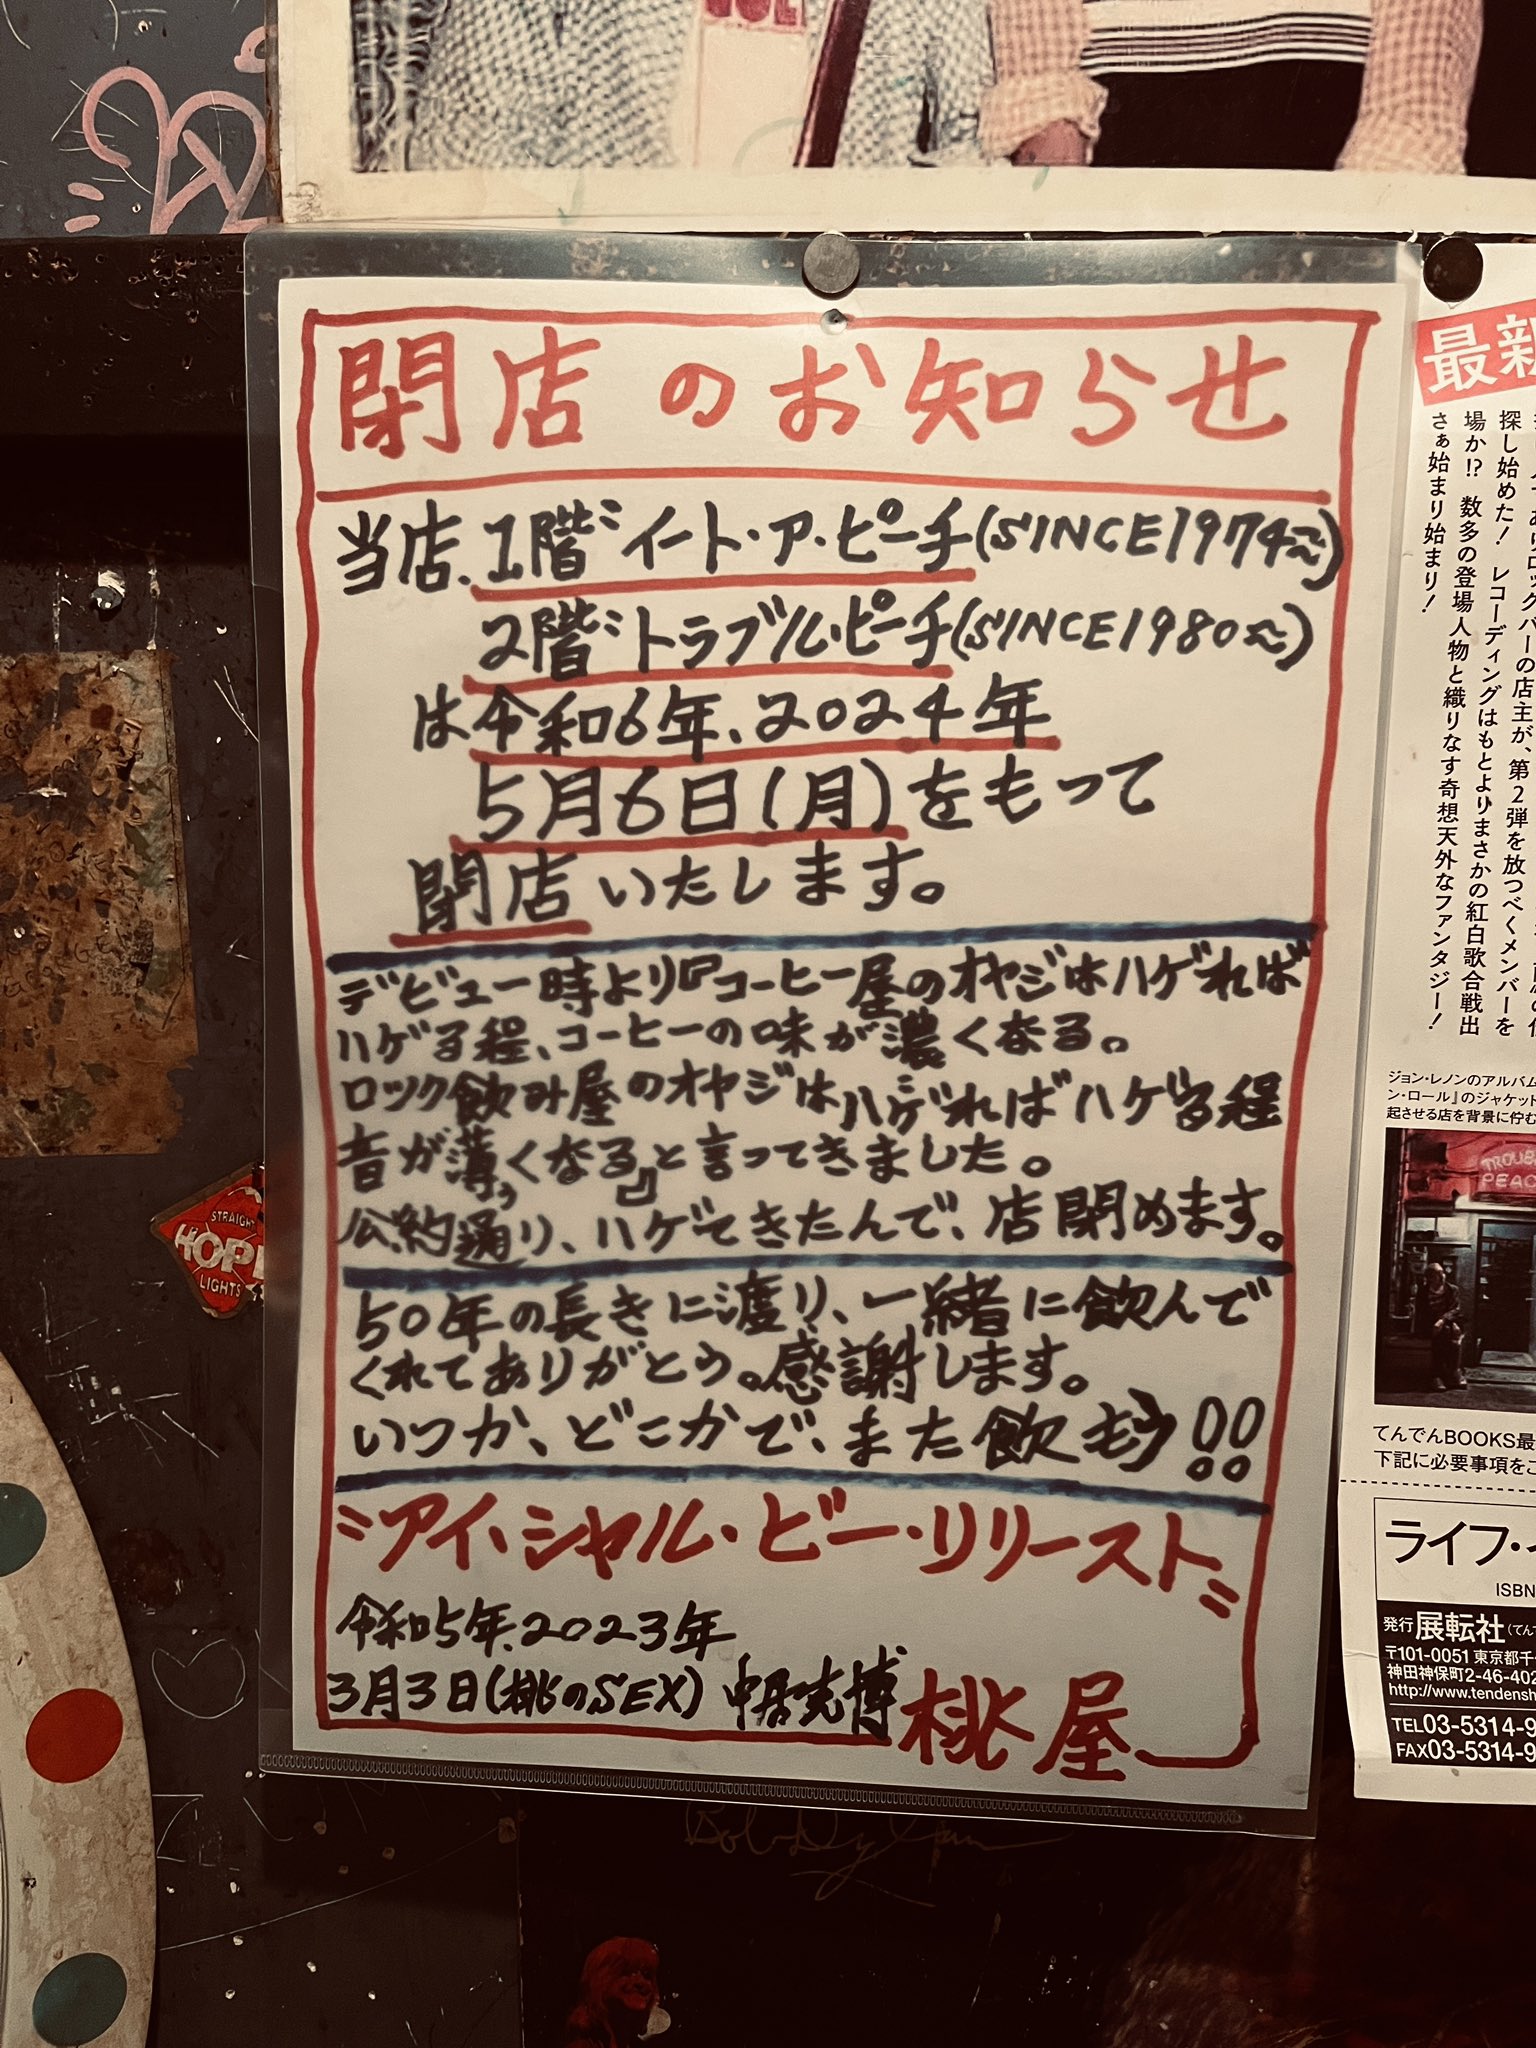 閉店のお知らせ
当店、1階〝イート・ア・ピーチ(SINCE1974〜)
2階〝トラブル・ピーチ(SINCE1980〜)
は令和6年、2024年
5月6日(月)をもって
閉店いたします。
デビュー時より『コーヒー屋のオヤジはハゲれば
ハゲる程、コーヒーの味が濃くなる。
ロック飲み屋のオヤジはハゲればハゲる程
音が薄くなる』と言ってきました。
公約通り、ハゲてきたんで、店閉めます。
50年の長きに渡り、一緒に飲んで
くれてありがとう。感謝します。
いつか、どこかで、また飲もう!!
〝アイ・シャル・ビー・リリースト〟
令和5年、2023年
3月3日(桃のSEX) 中居克博
桃屋
最新
探し始めた! レコーディングはもとよりまさかの紅白歌合戦出
場か!? 数多の登場人物と織りなす奇想天外なファンタジー!
さぁ始まり始まり!
ジョン・レノンのアルバム
ン・ロール』のジャケット
起させる店を背景に佇む
TROUB
PEAC
てんでんBOOKS最
下記に必要事項をご
ライフ・イ
ISBN
発行 展転社(てん
〒101-0051 東京都千
神田神保町2-46-402
http://www.tendensh
TEL03-5314-9
FAX03-5314-9
STRAIGHT
HOPE
LIGHTS